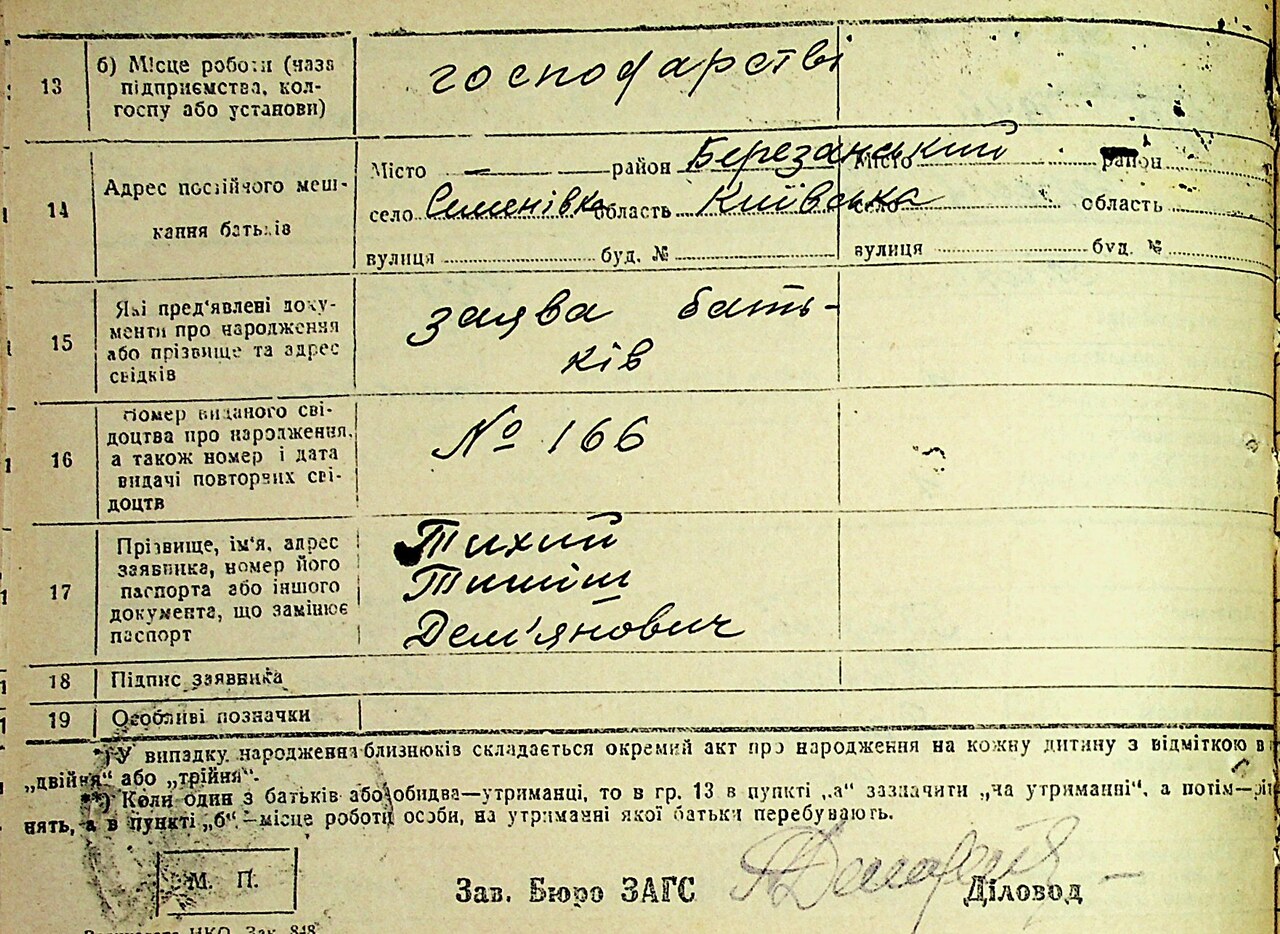 13 б) Місце роботи (назва
підприємства, кол-
госпу або установи)
господарстві
14 Адрес постійного меш-
кання батьків
Місто — район Березанський Місто район
село Семенівка область Київська село область
вулиця буд. № вулиця буд. №
15 Які пред'явлені доку-
менти про народження
або прізвище та адрес
свідків
заява бать-
ків
16 Номер виданого сві-
доцтва про народження,
а також номер і дата
видачі повторних сві-
доцтв
№ 166
17 Прізвище, ім'я, адрес
заявника, номер його
паспорта або іншого
документа, що замінює
паспорт
Тихий
Тиміш
Дем'янович
18 Підпис заявника
19 Особливі позначки
*) У випадку народження близнюків складається окремий акт про народження на кожну дитину з відміткою в
„двійня“ або „трійня“.
**) Коли один з батьків або обидва—утриманці, то в гр. 13 в пункті „а“ зазначити „на утриманні“, а потім—
нять, а в пункті „б“—місце роботи особи, на утриманні якої батьки перебувають.
М. П.
Зав. Бюро ЗАГС Діловод
НКО. Зак. 848